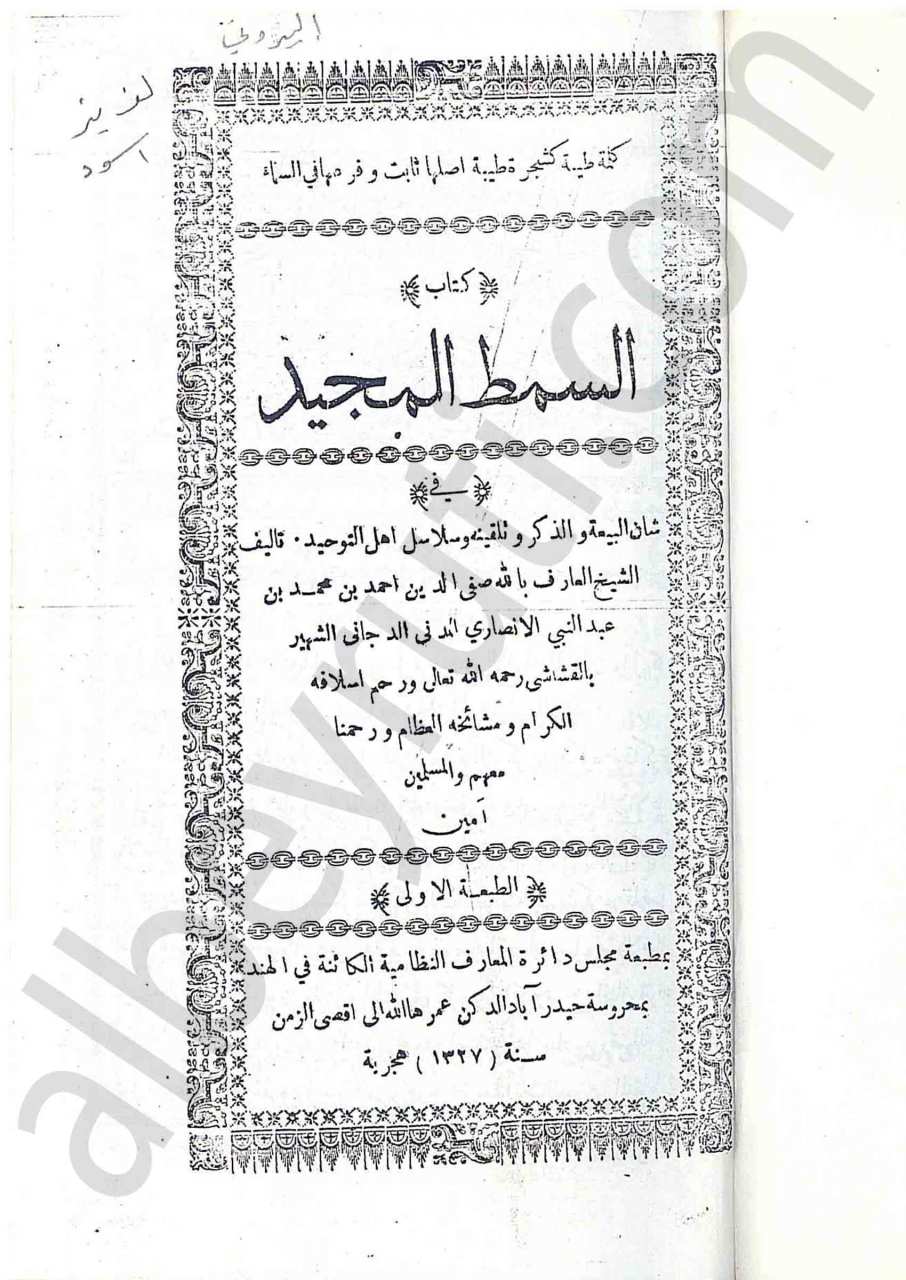 البيروتي
اسود
كلمة طيبة كشجرة طيبة اصلها ثابت و فرعها في السماء
كتاب
السمط المجيد
في
شان البيعة و الذكر و تلقينه وسلاسل اهل التوحيد · تاليف
الشيخ العارف بالله صفي الدين احمد بن محمد بن
عبد النبي الانصاري المدني الدجانى الشهير
بالقشاشى رحمه الله تعالى ورحم اسلافه
الكرام و مشائخه العظام و رحمنا
معهم والمسلمين
آمين
الطبعة الاولى
بمطبعة مجلس دائرة المعارف النظامية الكائنة في الهند
بمحروسة حيدر آباد الدكن عمرها الله الى اقصى الزمن
سنة (١٣٢٧) هجرية
albeyruti.com